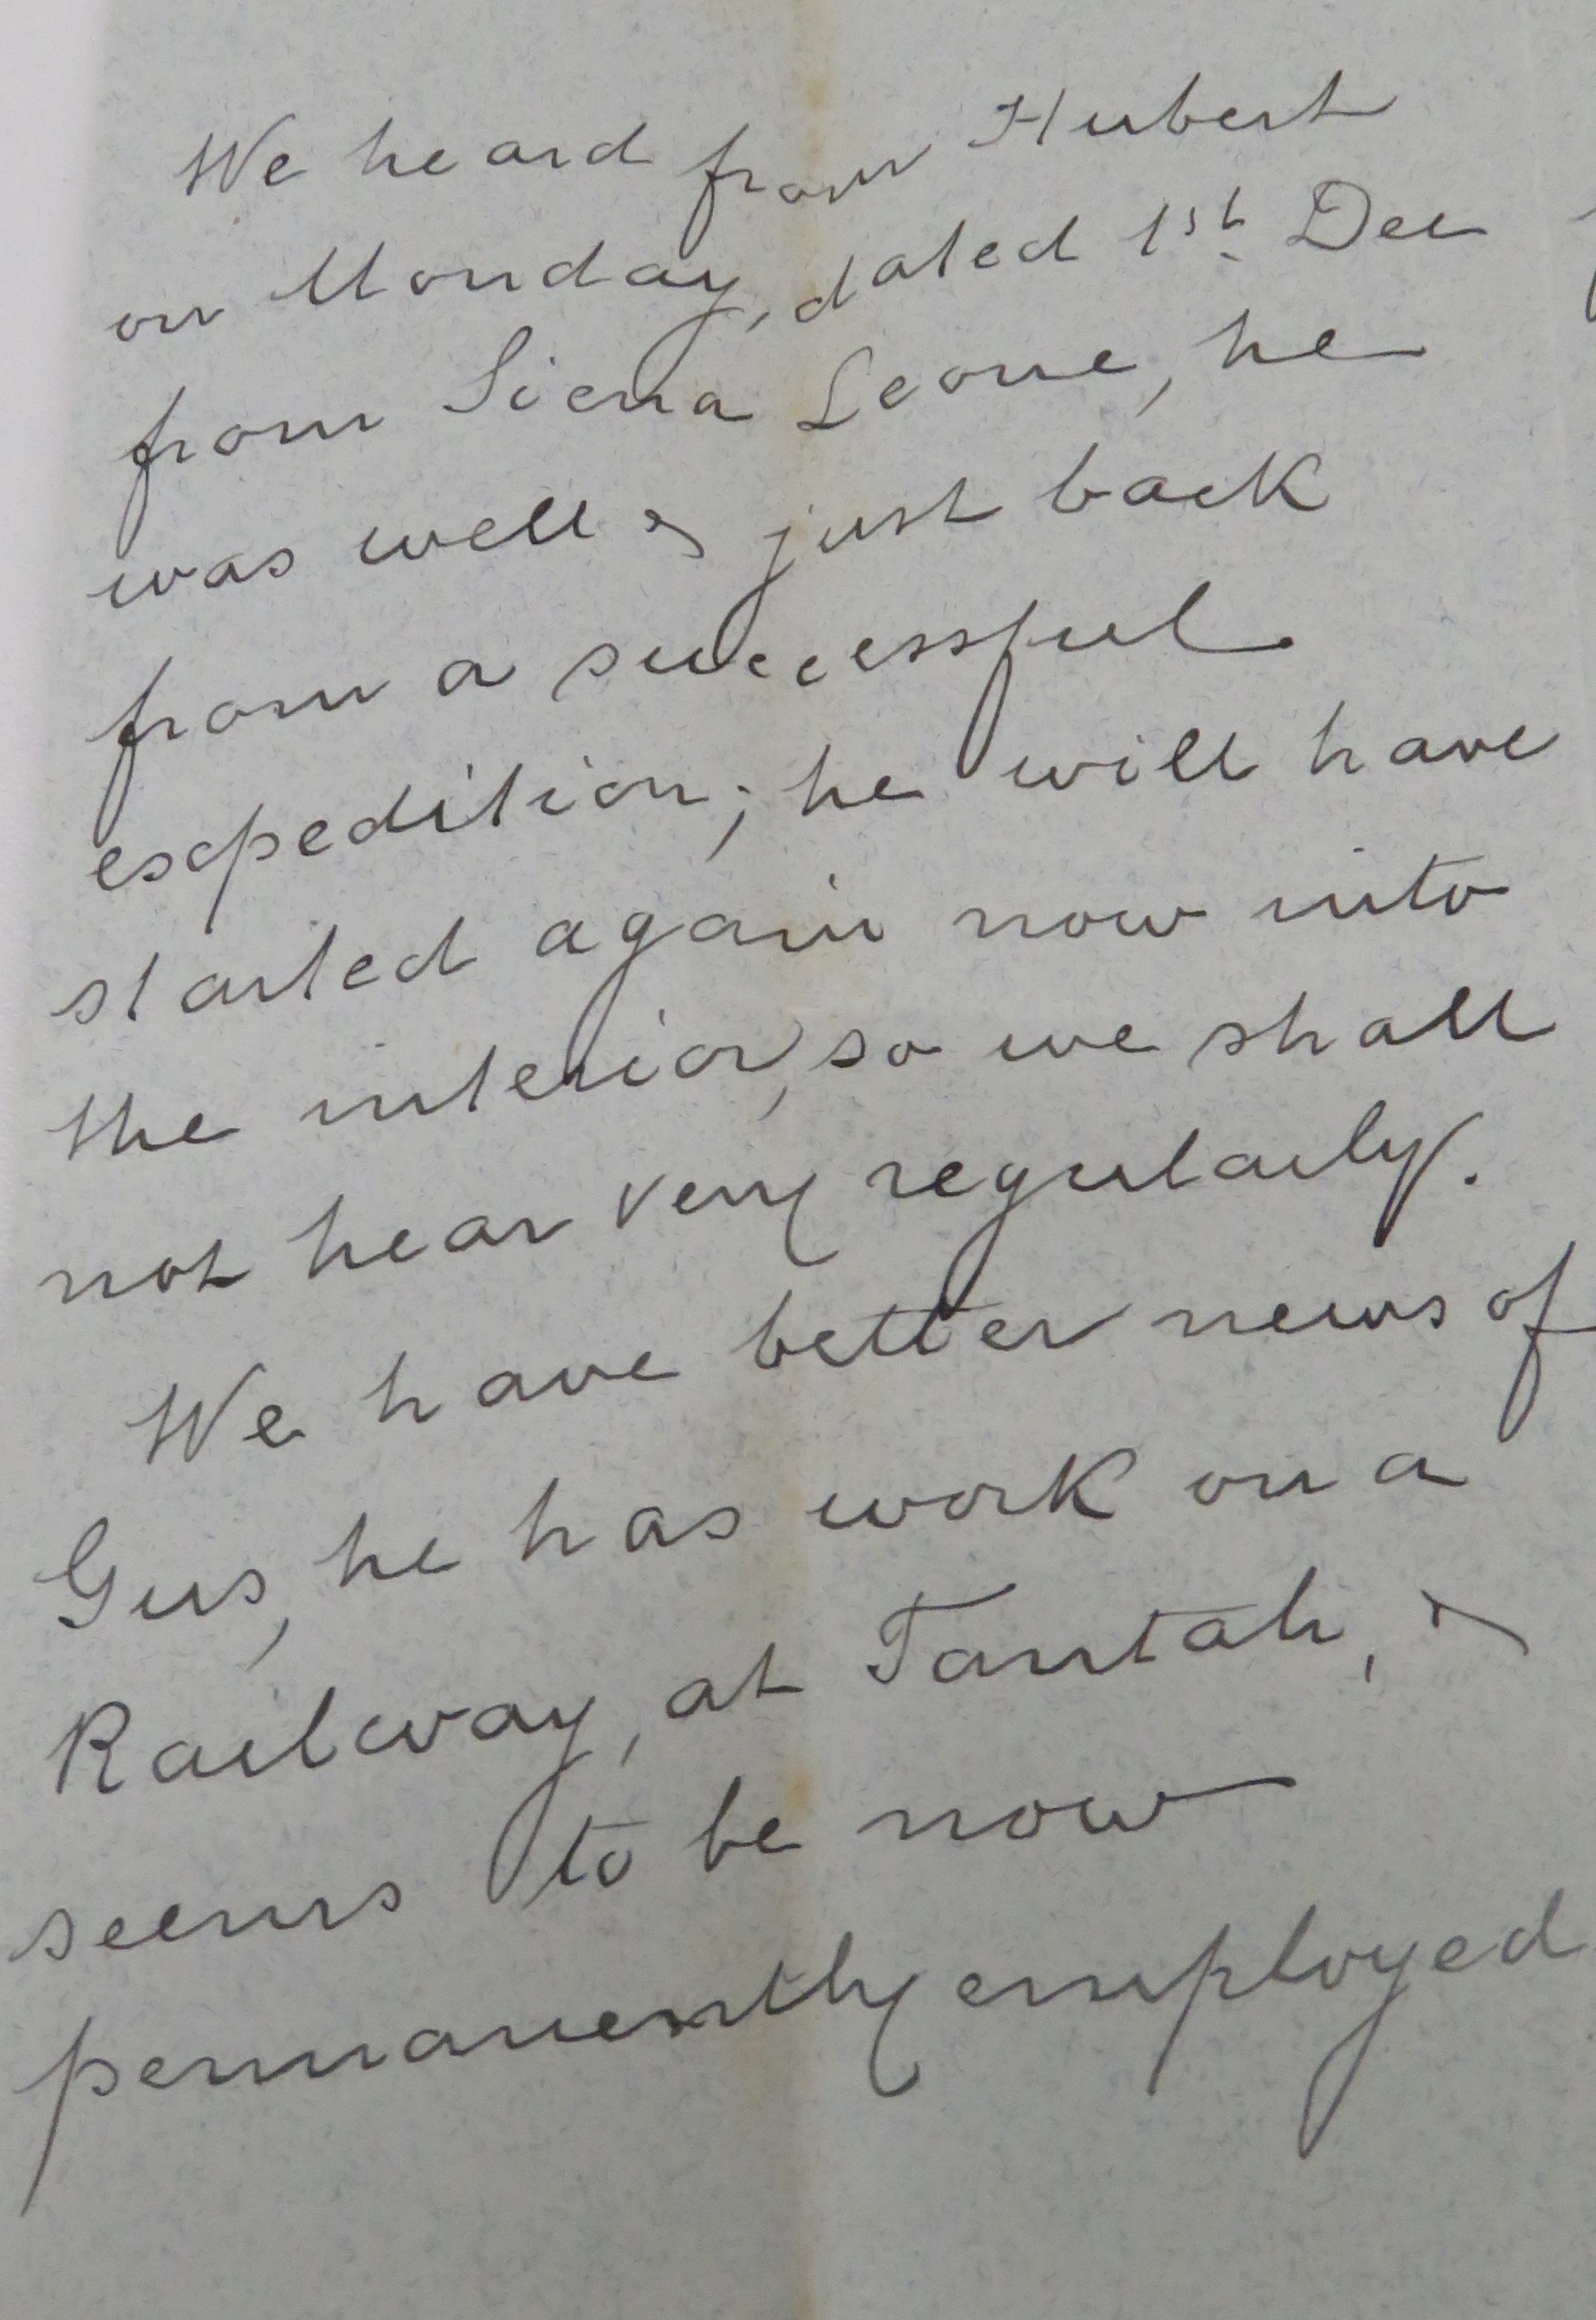 We heard from Hubert
on Monday, dated 1st. Dec
from Sierra Leone, he
was well & just back
from a successful
expedition; he will have
started again now into
the interior, so we shall
not hear very regularly.
We have better news of
Gus, he has work on a
Railway, at Tantah, &
seems to be now
permanently employed